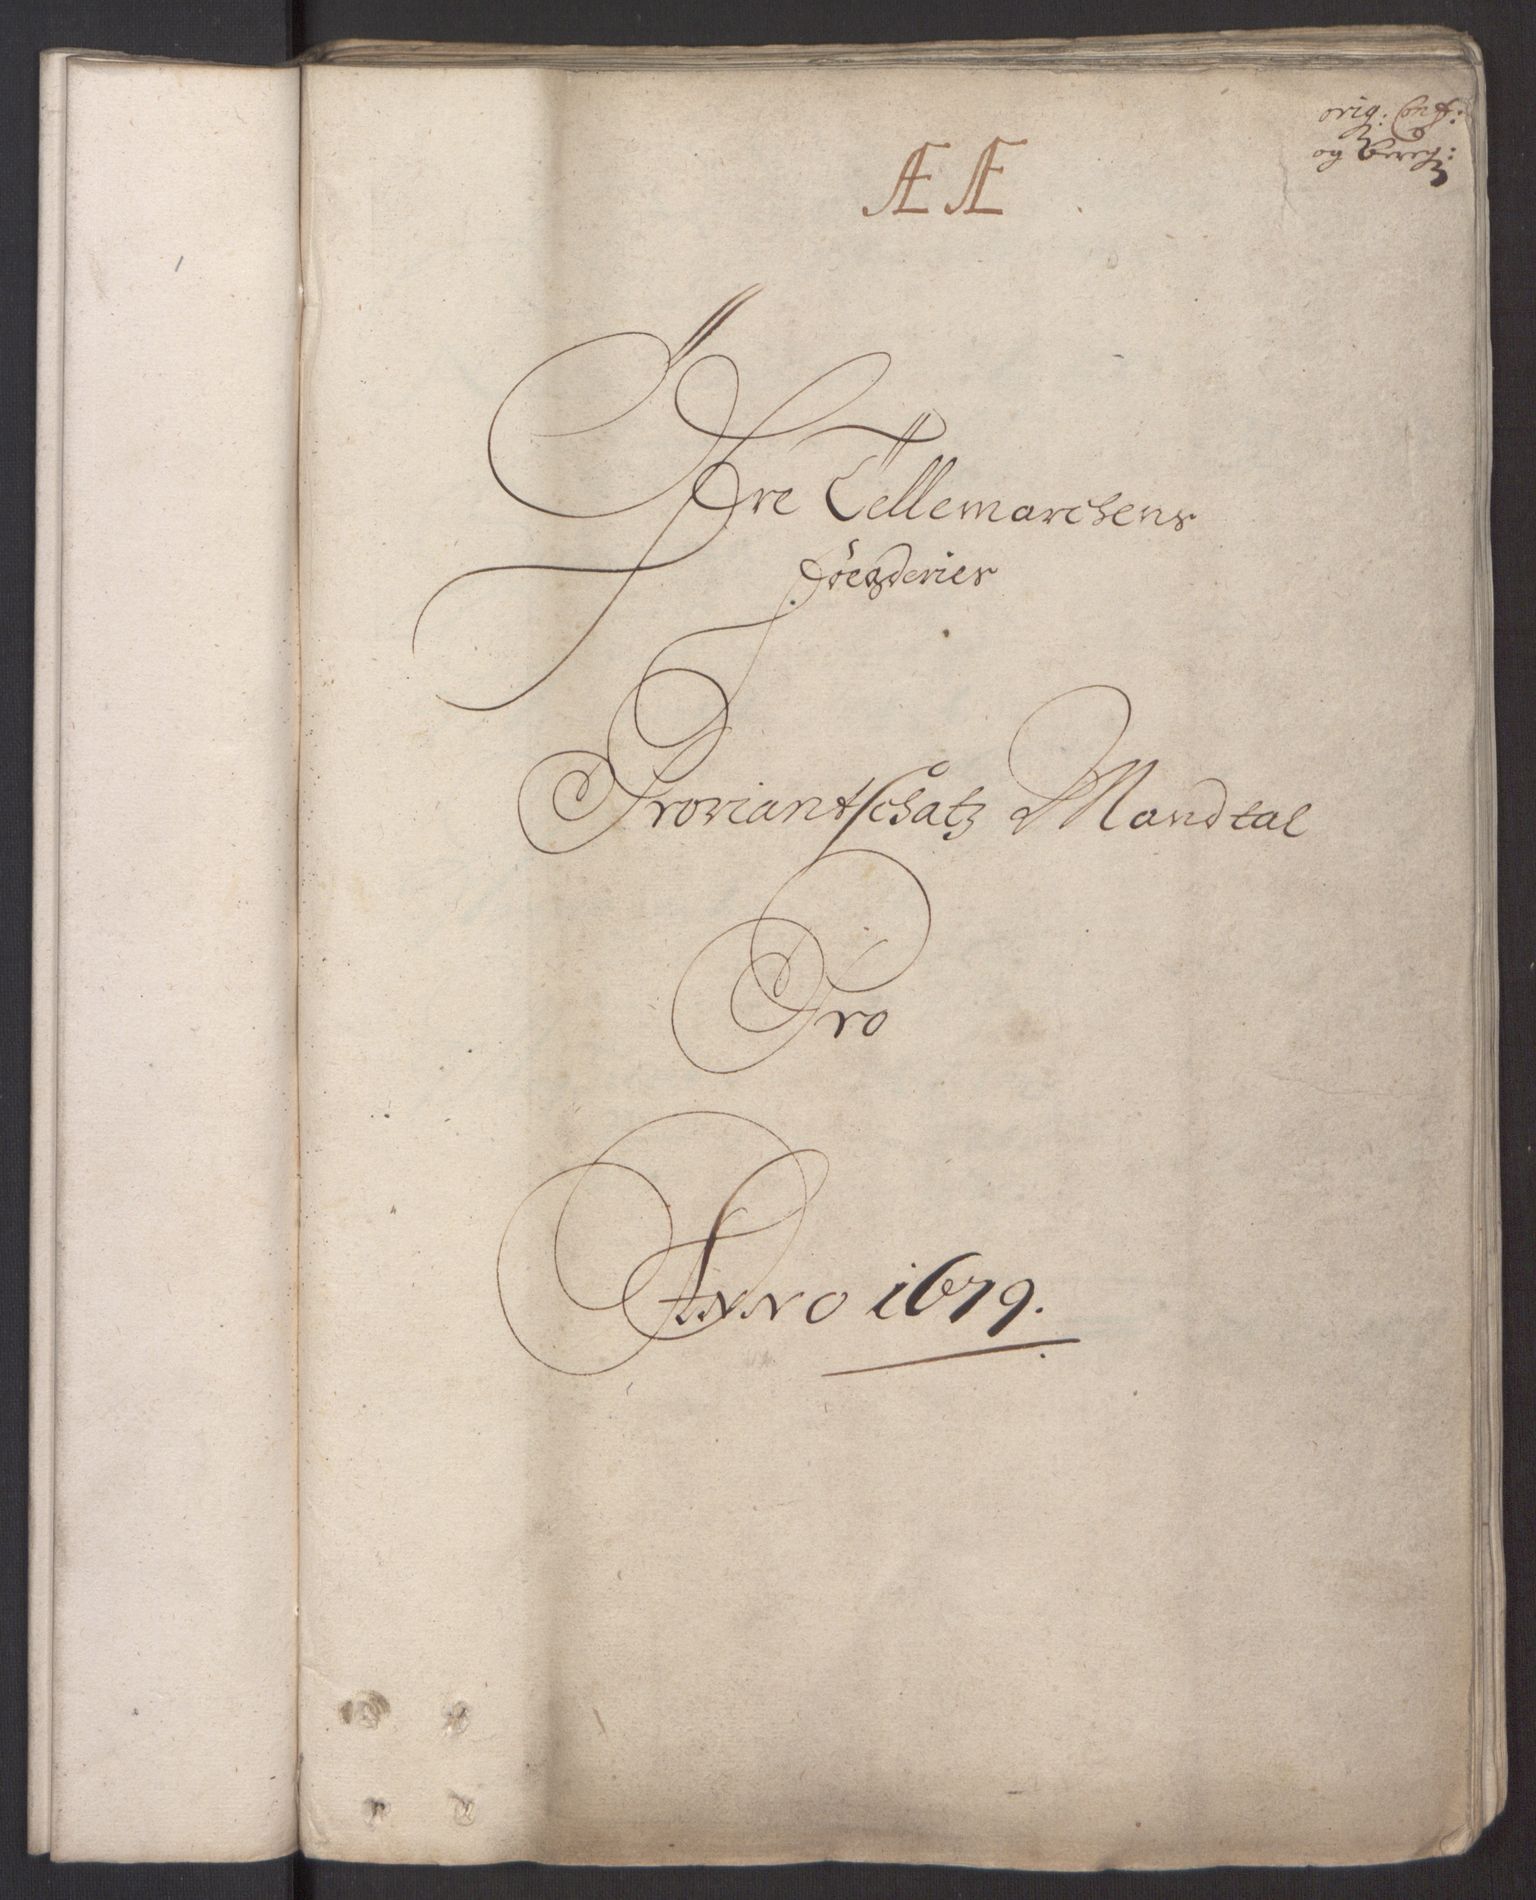 orig: Conf:
og bereg:
ÆÆ
Øfre Tellemarchens
Foegderies
Proviantschatz Mandtal
Pro
Anno 1679.